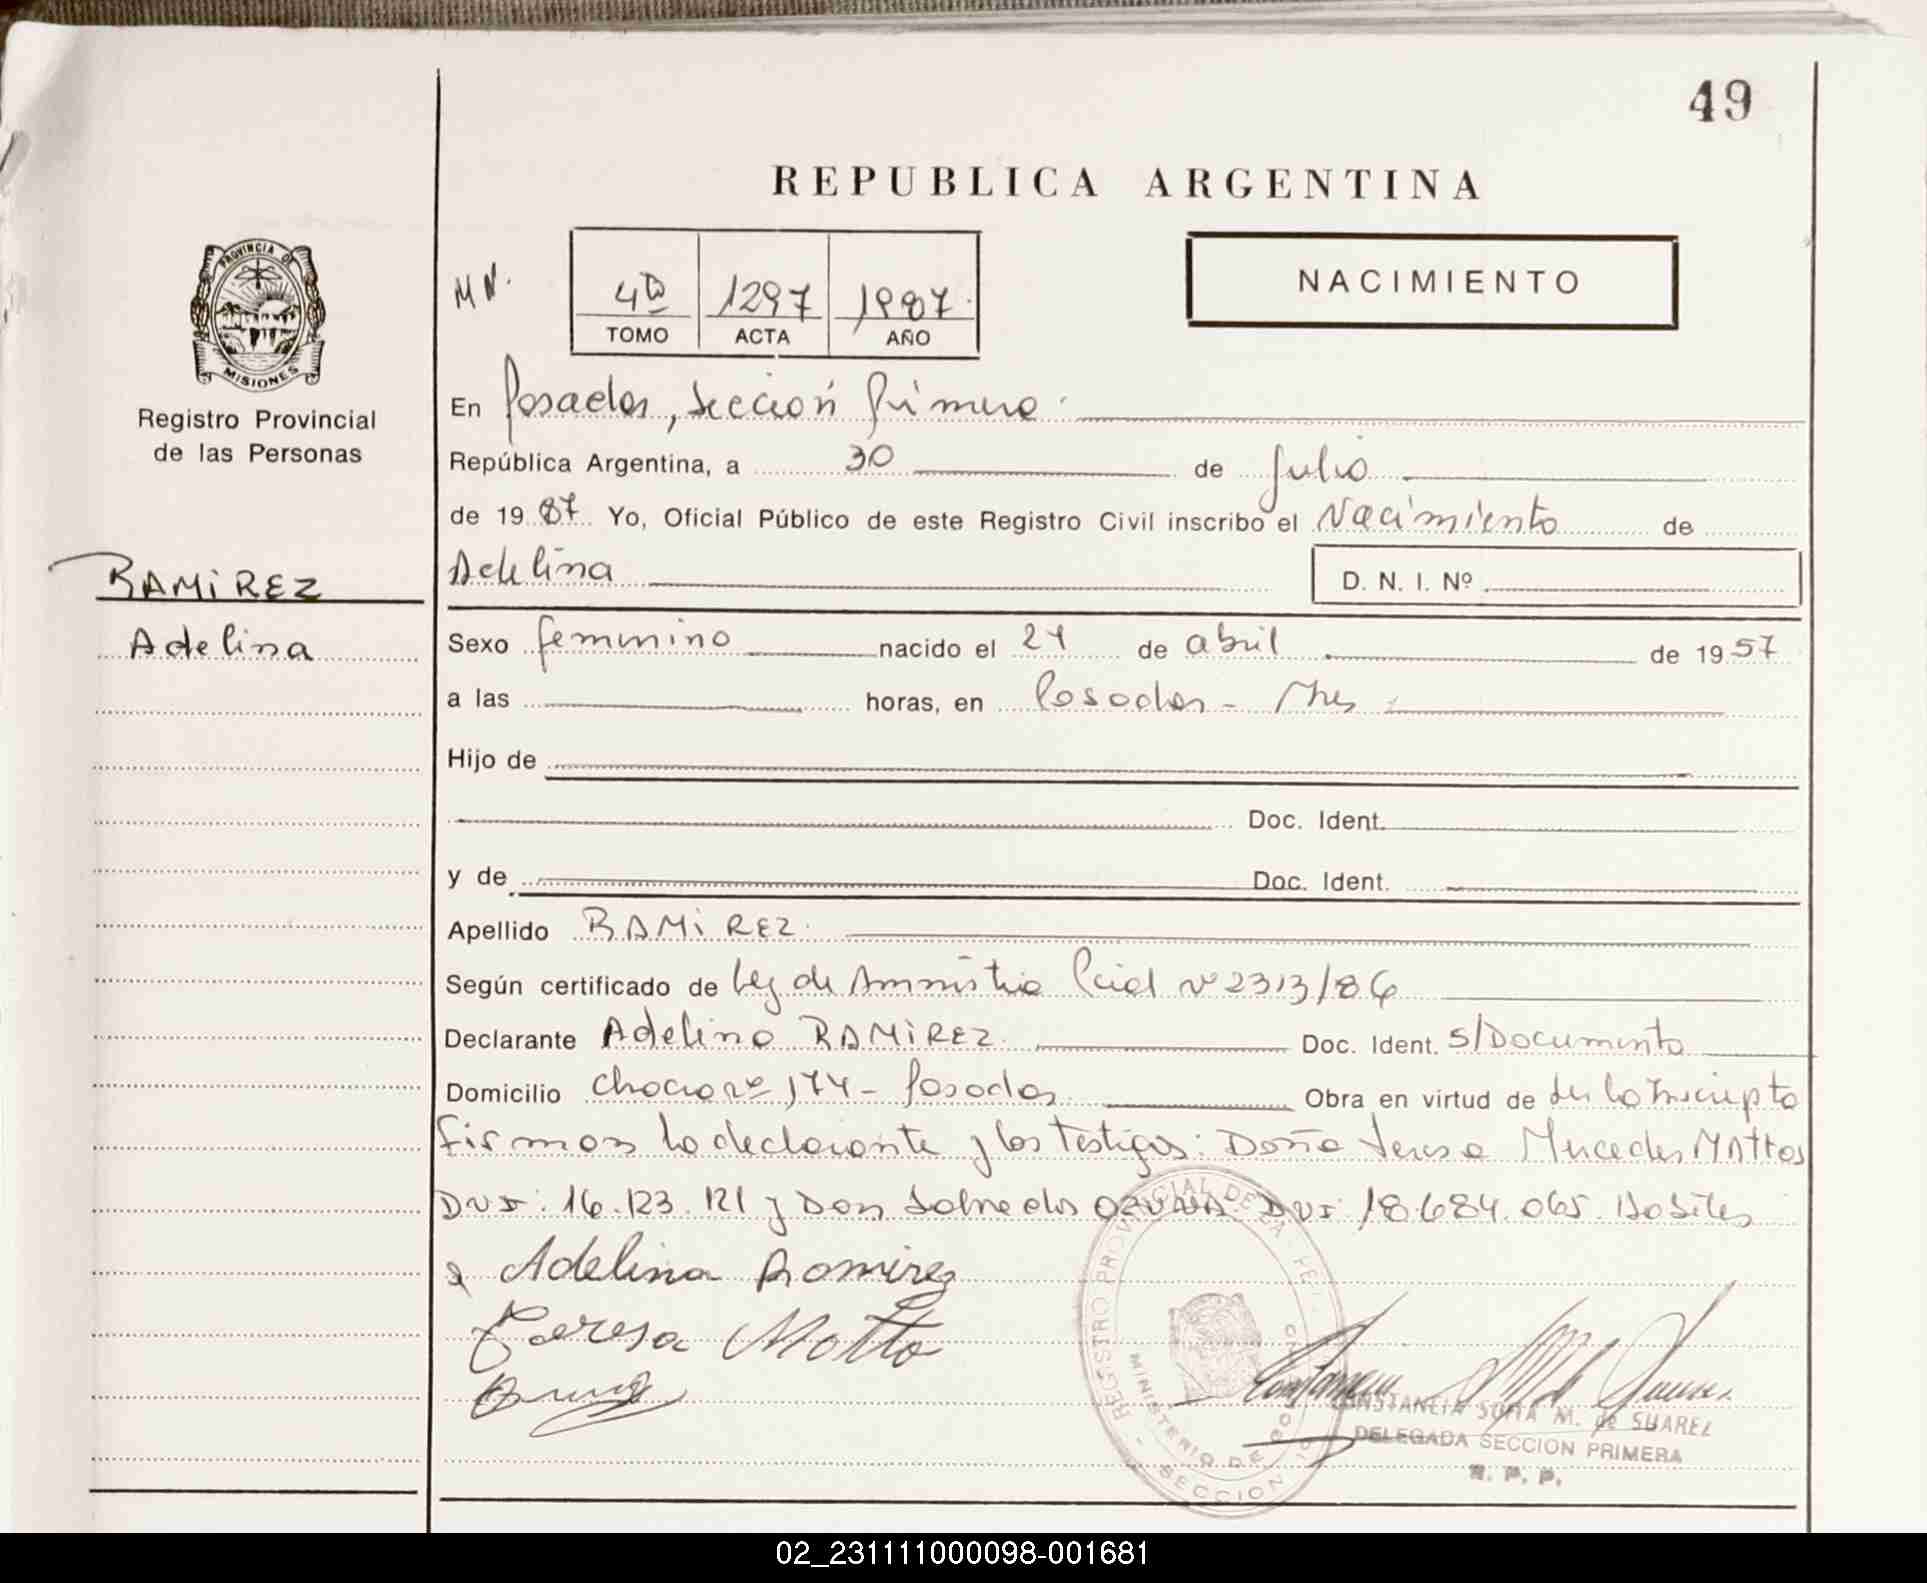 49
REPUBLICA ARGENTINA
PROVINCIA DE
MISIONES
Registro Provincial
de las Personas
M N.
4to 1297 1987
TOMO ACTA AÑO
NACIMIENTO
En Posadas, Sección Primera
República Argentina, a 30 de Julio
de 1987. Yo, Oficial Público de este Registro Civil inscribo el Nacimiento de
RAMIREZ
Adelina
Adelina D. N. I. Nº
Sexo femenino nacido el 24 de abril de 1957
a las horas, en Posadas - Mnes
Hijo de
Doc. Ident.
y de Doc. Ident.
Apellido RAMIREZ
Según certificado de Ley de Amnistia Pcial Nº 2313/86
Declarante Adelina RAMIREZ Doc. Ident. S/Documento
Domicilio Nº 174 - Posadas Obra en virtud de ser la Inscripta
firman la declarante y los testigos: Doña Teresa Mercedes MATTOS
DNI: 16.123.121 y Don DNI: 18.684.065. Habiles
Adelina Ramirez
Teresa Motto
REGISTRO PROVINCIAL DE LA
MINISTERIO DE
SECCION
CONSTANCIA SOFIA M. de SUAREZ
DELEGADA SECCION PRIMERA
R. P. P.
02_231111000098-001681